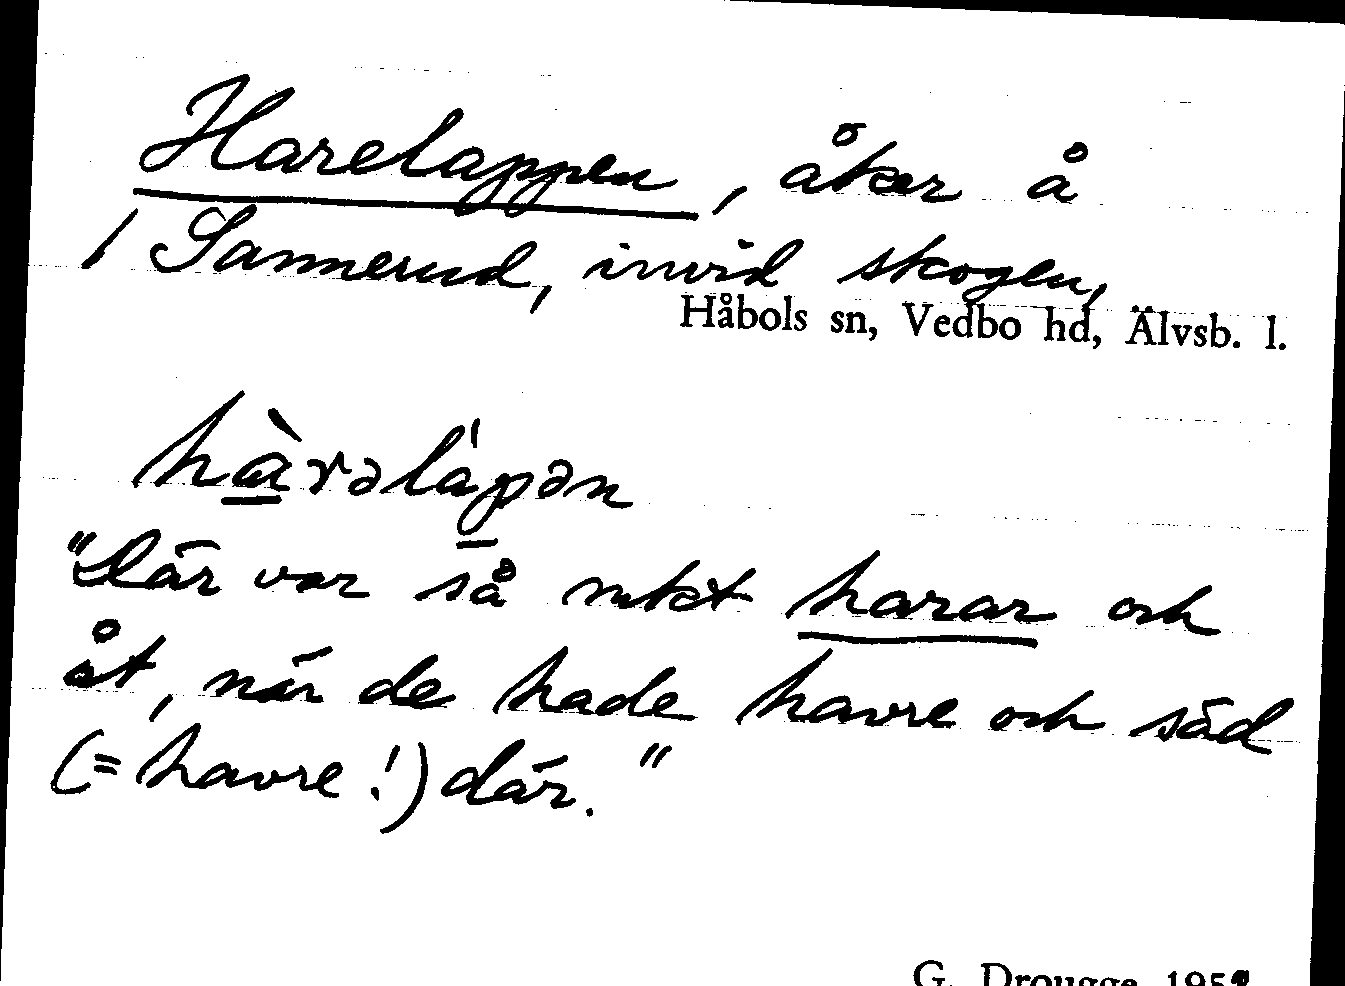 Harelappen, åker å
1 Sannerud, invid skogen,
Håbols sn, Vedbo hd, Älvsb. l.
hàrəlápən
"Där var så mkt harar och
åt, när de hade havre och säd
(= havre!) där."
G. Drougge 195